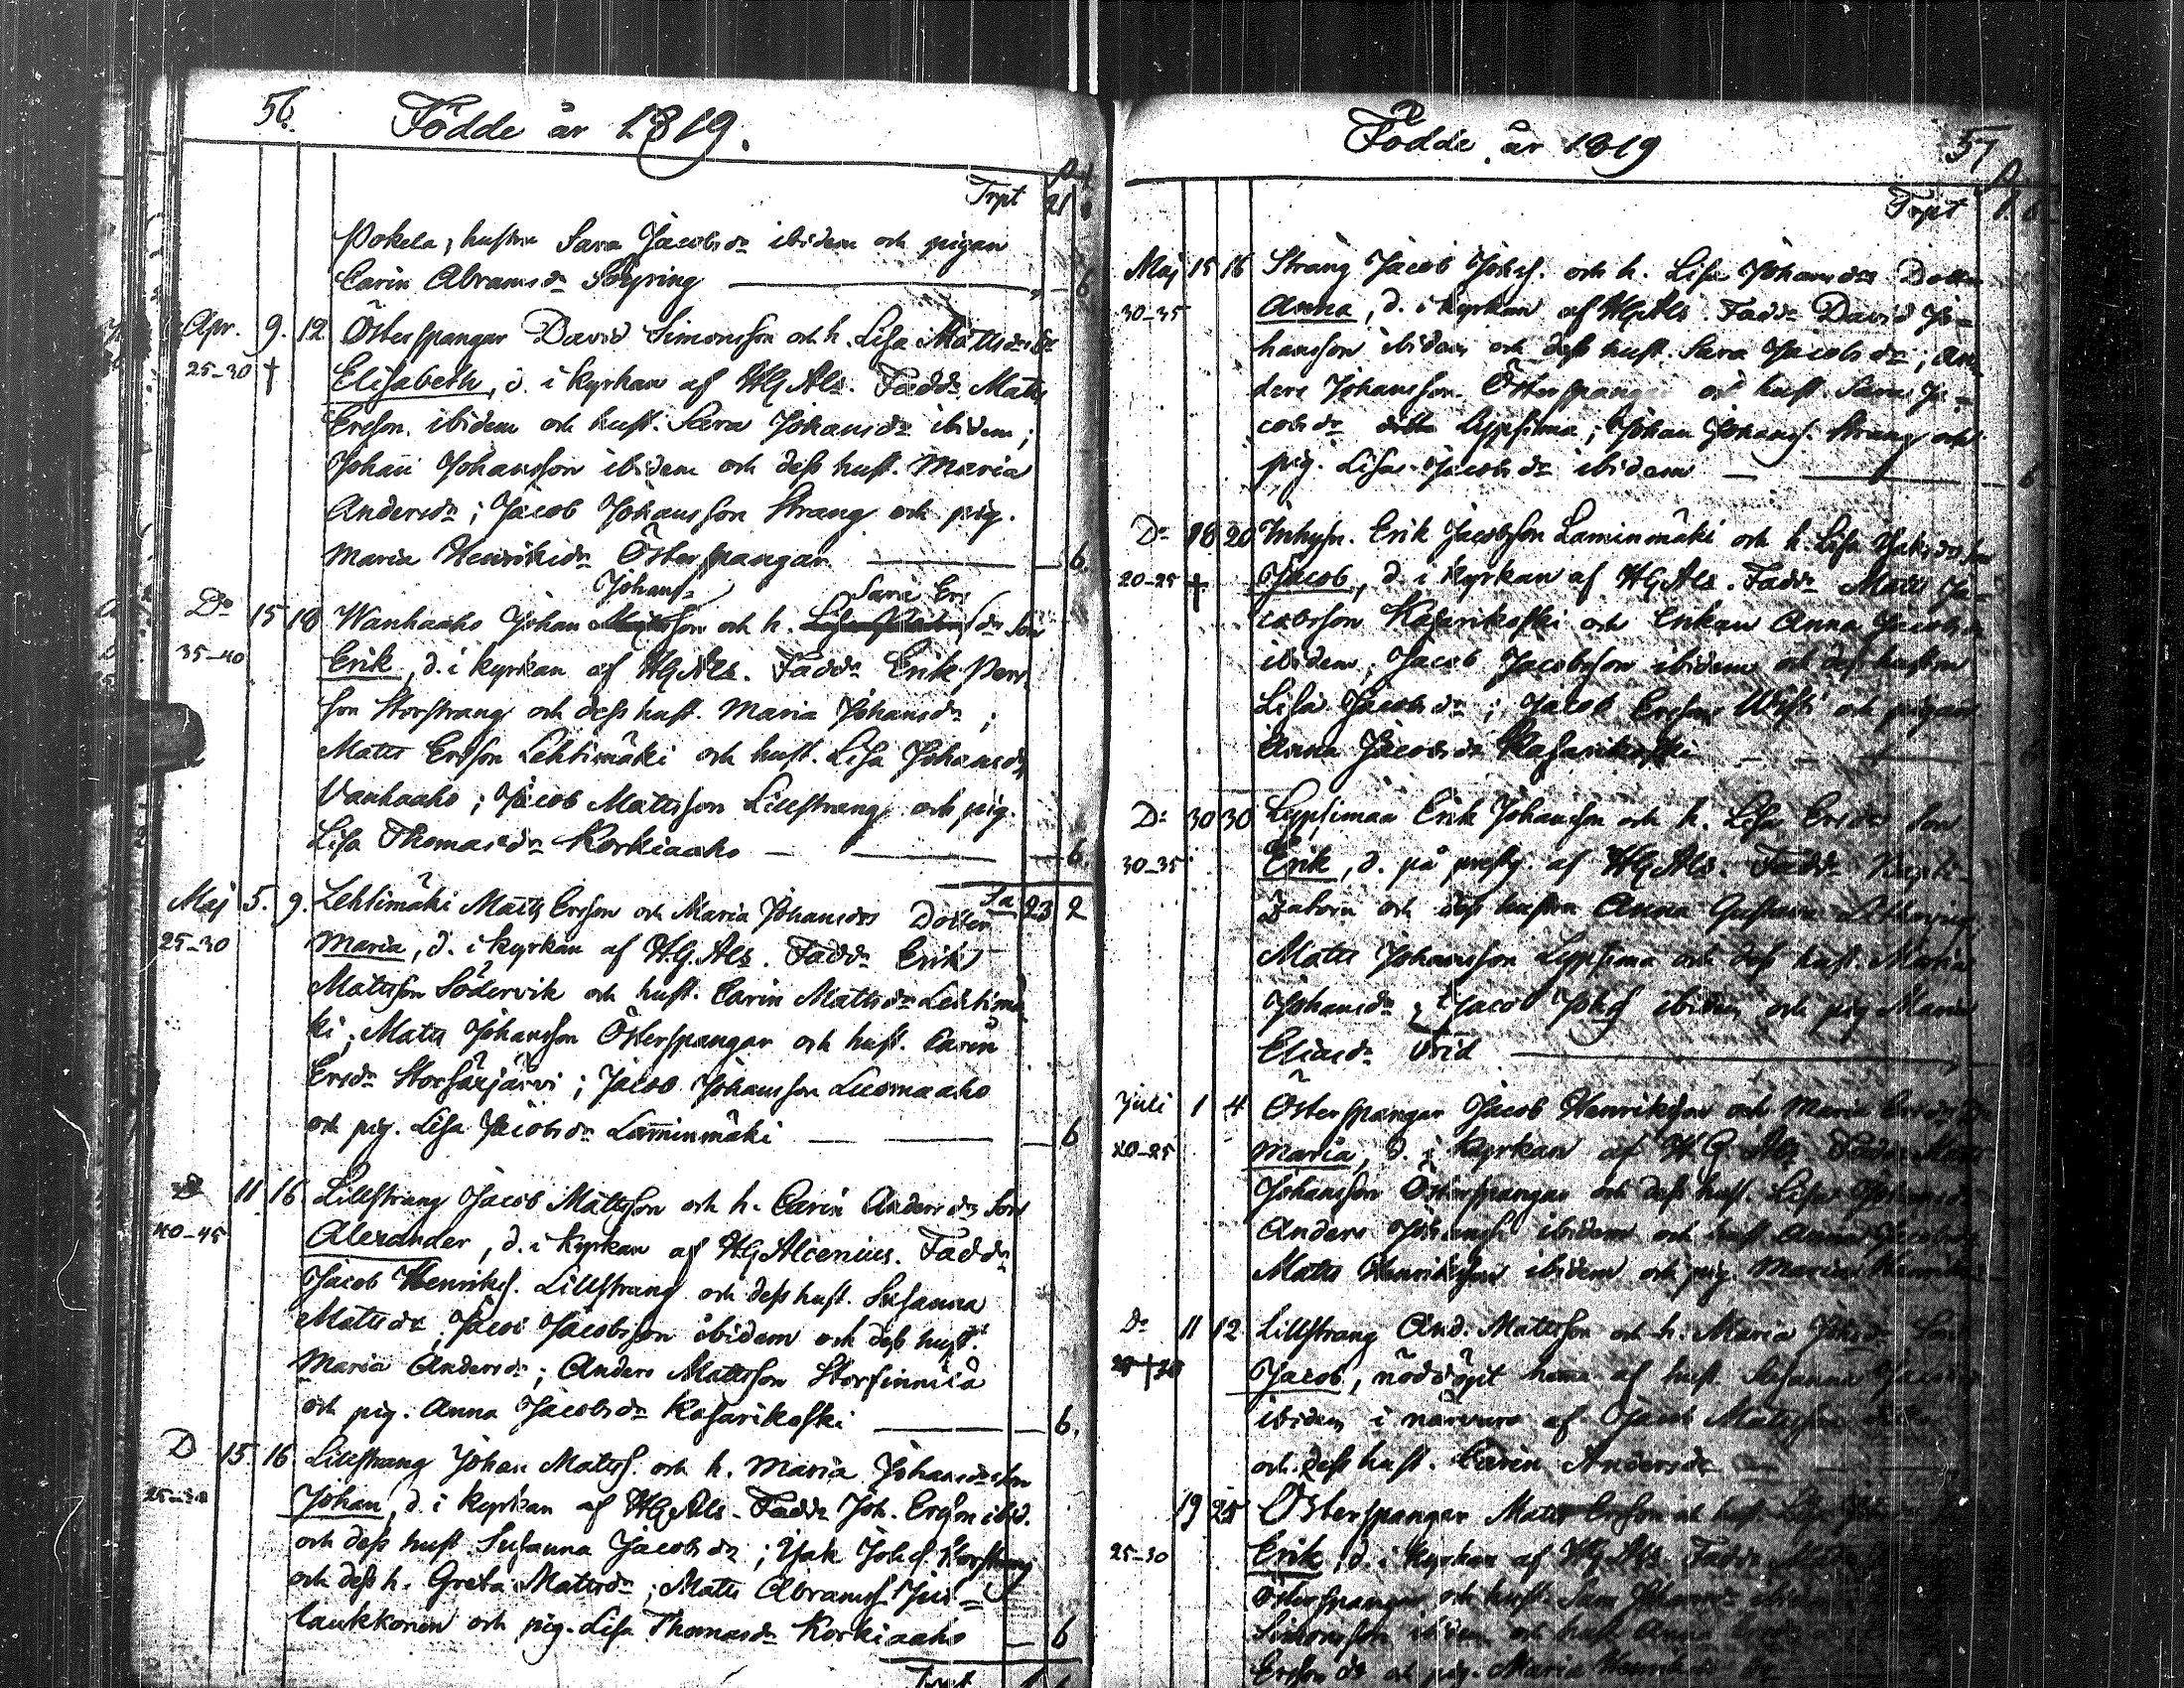 56.
Födde år 1819.
Trpt 21
Pokela, hustru Sara Jacobsdr ibidem och pigan
Carin Abramsdr Söyring — 6
Apr. 9. 12 Österspangar David Simonsson och h. Lisa Mattsdr
25-30 † Elisabeth, d. i kyrkan af HGAls. Faddr Matts
Ersson ibidem och hust. Sara Johansdr ibidem;
Johan Johansson ibidem och dess hust. Maria
Andersdr; Jacob Johansson Strang och pig.
Maria Henriksdr Österspangar — 6
Johans Sara Ers
Do 15 18 Wanhaaho Johan son och h. dr Son
35-40 Erik, d. i kyrkan af HGAls. Faddr Erik Pers
son Storstrang och dess hust. Maria Johansdr;
Matts Ersson Lehtimäki och hust. Lisa Johansdr
Vanhaaho; Jacob Mattsson Lillstrang och pig.
Lisa Thomasdr Korkiaaho — 6
Sa 23 2
Maj 5. 9. Lehtimäki Matts Ersson och Maria Johansdrs Dotter
25-30 Maria, d. i kyrkan af HGAls. Faddr Erik
Mattsson Södervik och hust. Carin Mattsdr Lehtimä
ki; Matts Johansson Österspangar och hust. Carin
Ersdr Storsärjärvi; Jacob Johansson Luomaaho
och pig. Lisa Jacobsdr Laminmäki — 6
D 11 16 Lillstrang Jacob Mattsson och h. Carin Andersdrs Son
40-45 Alexander, d. i kyrkan af HGAlcenius. Faddr
Jacob Henrikss. Lillstrang och dess hust. Susanna
Mattsdr; Jacob Jacobsson ibidem och dess hust.
Maria Andersdr; Anders Mattsson Storfinnilä
och pig. Anna Jacobsdr Kasarikoski — 6.
D 15 16 Lillstrang Johan Mattss. och h. Maria Johansdrs Son
25-30 Johan, d. i kyrkan af HGAls. Faddr Joh. Ersson ibid.
och dess hust. Susanna Jacobsdr; Isak Johss. Storstrang
och dess h. Greta Mattsdr; Matts Abramss. Jus=
laukkonen och pig. Lisa Thomasdr Korkiaaho — 6
Trpt
Födde år 1819
57
Trpt 6
Maj 15 16 Strang Jacob Johss. och h. Lisa Johansdrs Dotter
30-35 Anna, d. i kyrkan af HGAls. Faddr David Jo=
hansson ibidem och dess hust. Sara Jacobsdr; An
ders Johansson Österspangar och hust. Sara Ja=
cobsdr Lypsimä; Johan Johanss. Strang och
pig. Lisa Jacobsdr ibidem — 6
Do 18 20 Inhysn. Erik Jacobsson Laminmäki och h. Lisa Isaksdrs Son
20-25 † Jacob, d. i kyrkan af HGAls. Faddr Matts Ja=
cobsson Kasarikoski och Enkan Anna Jacobsdr
ibidem; Jacob Jacobsson ibidem och dess hustru
Lisa Jacobsdr; Jacob Ersson Wisti och pigan
Anna Jacobsdr Kasarikoski —
Do 30 30 Lypsimää Erik Johansson och h. Lisa Ersdrs Son
30-35 Erik, d. på prestg. af HGAls. Faddr
och dess hustru Anna Gustava
Matts Johansson Lypsimä och dess hust. Maria
Johansdr; Jacob Johss ibidem och pig Maria
Eliasdr Frid —
Juli 1 4 Österspangar Jacob Henriksson och Maria Ersdrs
20-25 Maria, d. i kyrkan af H.G. Als. Faddr Matts
Johansson Österspangar och dess hust. Lisa Johansdr
Anders Johanss. ibidem och hust Anna Jacobsdr
Matts Henriksson ibidem och pig. Maria Henriks
Do 11 12 Lillstrang And. Mattsson och h. Maria Johsdr Son
Jacob, nöddöpt hema af hust. Susanna Jacobs
ibidem i närvaro af Jacob Mattsson
och dess hust. Carin Andersdr —
19 25 Österspangar Matts Ersson och hust. Lisa
25-30 Erik, d. i kyrkan af HGAls. Faddr Matts
Österspangar och hust. Sara Johansdr ibidem
Simonsson ibidem och hust Anna
Ersson do och pig. Maria Henriks